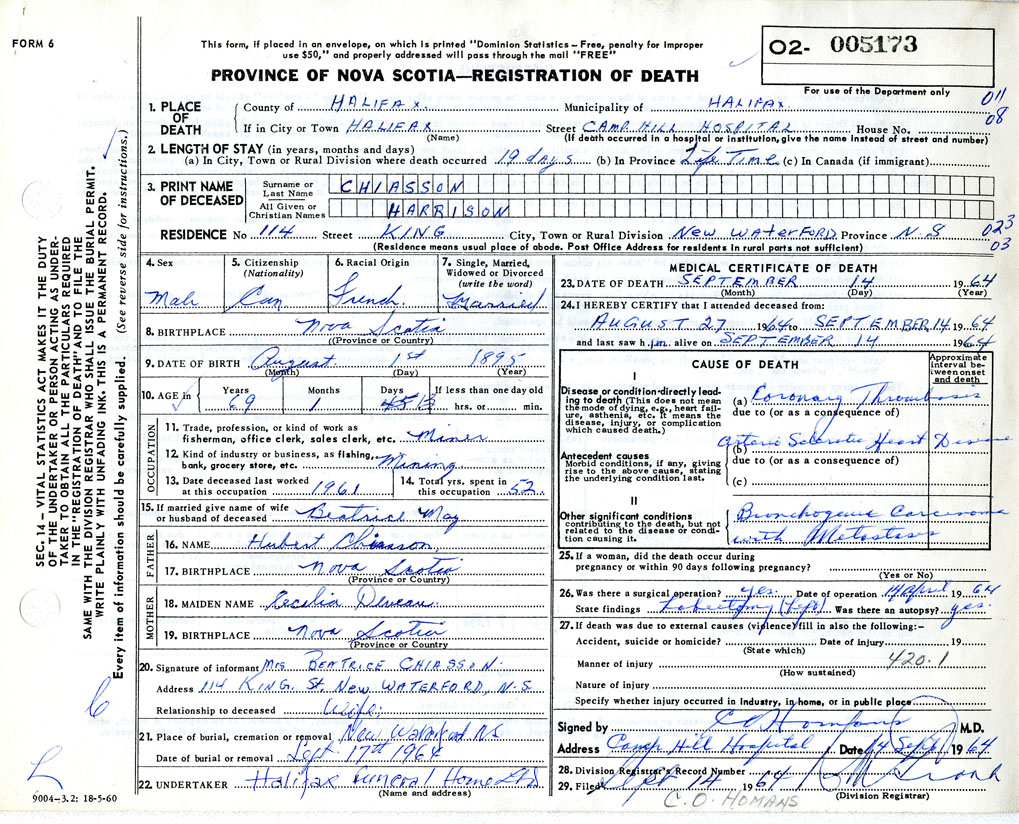 FORM 6
This form, if placed in an envelope, on which is printed "Dominion Statistics – Free, penalty for improper
use $50," and properly addressed will pass through the mail "FREE"
PROVINCE OF NOVA SCOTIA—REGISTRATION OF DEATH
O2- 005173
For use of the Department only
011
08
1. PLACE OF DEATH County of HALIFAX Municipality of HALIFAX
If in City or Town HALIFAX Street CAMP HILL HOSPITAL House No.
(Name) (If death occurred in a hospital or institution, give name instead of street and number)
2. LENGTH OF STAY (in years, months and days)
(a) In City, Town or Rural Division where death occurred 19 days (b) In Province Life Time (c) In Canada (if immigrant)
3. PRINT NAME OF DECEASED
Surname or Last Name CHIASSON
All Given or Christian Names HARRISON
RESIDENCE No 114 Street KING City, Town or Rural Division NEW WATERFORD Province N.S
(Residence means usual place of abode. Post Office Address for residents in rural parts not sufficient)
023
03
4. Sex Male
5. Citizenship (Nationality) Can
6. Racial Origin French
7. Single, Married, Widowed or Divorced (write the word) Married
8. BIRTHPLACE Nova Scotia
(Province or Country)
9. DATE OF BIRTH August 1st 1895
(Month) (Day) (Year)
10. AGE in Years 69 Months 1 Days 13 If less than one day old hrs. or min.
OCCUPATION
11. Trade, profession, or kind of work as
fisherman, office clerk, sales clerk, etc. Miner
12. Kind of industry or business, as fishing,
bank, grocery store, etc. Mining
13. Date deceased last worked at this occupation 1961
14. Total yrs. spent in this occupation 52
15. If married give name of wife
or husband of deceased Beatrice May
FATHER
16. NAME Hubert Chiasson
17. BIRTHPLACE Nova Scotia
(Province or Country)
MOTHER
18. MAIDEN NAME Cecilia Deveau
19. BIRTHPLACE Nova Scotia
(Province or Country)
20. Signature of informant Mrs BEATRICE CHIASSON
Address 114 KING. St. New WATERFORD, N.S.
Relationship to deceased Wife
21. Place of burial, cremation or removal New Waterford NS
Date of burial or removal Sept 17th 1964
22. UNDERTAKER Halifax Funeral Home Ltd
(Name and address)
MEDICAL CERTIFICATE OF DEATH
23. DATE OF DEATH SEPTEMBER 14 1964
(Month) (Day) (Year)
24. I HEREBY CERTIFY that I attended deceased from:
AUGUST 27 1964 to SEPTEMBER 14 1964
and last saw him alive on SEPTEMBER 14 1964
CAUSE OF DEATH
Approximate interval between onset and death
I
Disease or condition directly leading to death (This does not mean
the mode of dying, e.g., heart failure, asthenia, etc. It means the
disease, injury, or complication
which caused death.)
(a) Coronary Thrombosis
due to (or as a consequence of)
(b) Arterio Sclerotic Heart Disease
due to (or as a consequence of)
(c)
Antecedent causes
Morbid conditions, if any, giving
rise to the above cause, stating
the underlying condition last.
II
Other significant conditions
contributing to the death, but not
related to the disease or condition causing it.
Bronchogenic Carcinoma
with Metastases
25. If a woman, did the death occur during
pregnancy or within 90 days following pregnancy?
(Yes or No)
26. Was there a surgical operation? yes. Date of operation 14 April 1964
State findings Lobectomy (Left) Was there an autopsy? yes.
27. If death was due to external causes (violence) fill in also the following:–
Accident, suicide or homicide? Date of injury 19
(State which)
420.1
Manner of injury
(How sustained)
Nature of injury
Specify whether injury occurred in industry, in home, or in public place
Signed by C O Homans M.D.
Address Camp Hill Hospital Date 14 Sept 1964
28. Division Registrar's Record Number
29. Filed Sept 14 1964
(Division Registrar)
C. O. HOMANS
SEC. 14 – VITAL STATISTICS ACT MAKES IT THE DUTY
OF THE UNDERTAKER OR PERSON ACTING AS UNDER-
TAKER TO OBTAIN ALL THE PARTICULARS REQUIRED
IN THE "REGISTRATION OF DEATH" AND TO FILE THE
SAME WITH THE DIVISION REGISTRAR WHO SHALL ISSUE THE BURIAL PERMIT.
WRITE PLAINLY WITH UNFADING INK. THIS IS A PERMANENT RECORD.
Every item of information should be carefully supplied. (See reverse side for instructions.)
9004–3.2: 18-5-60